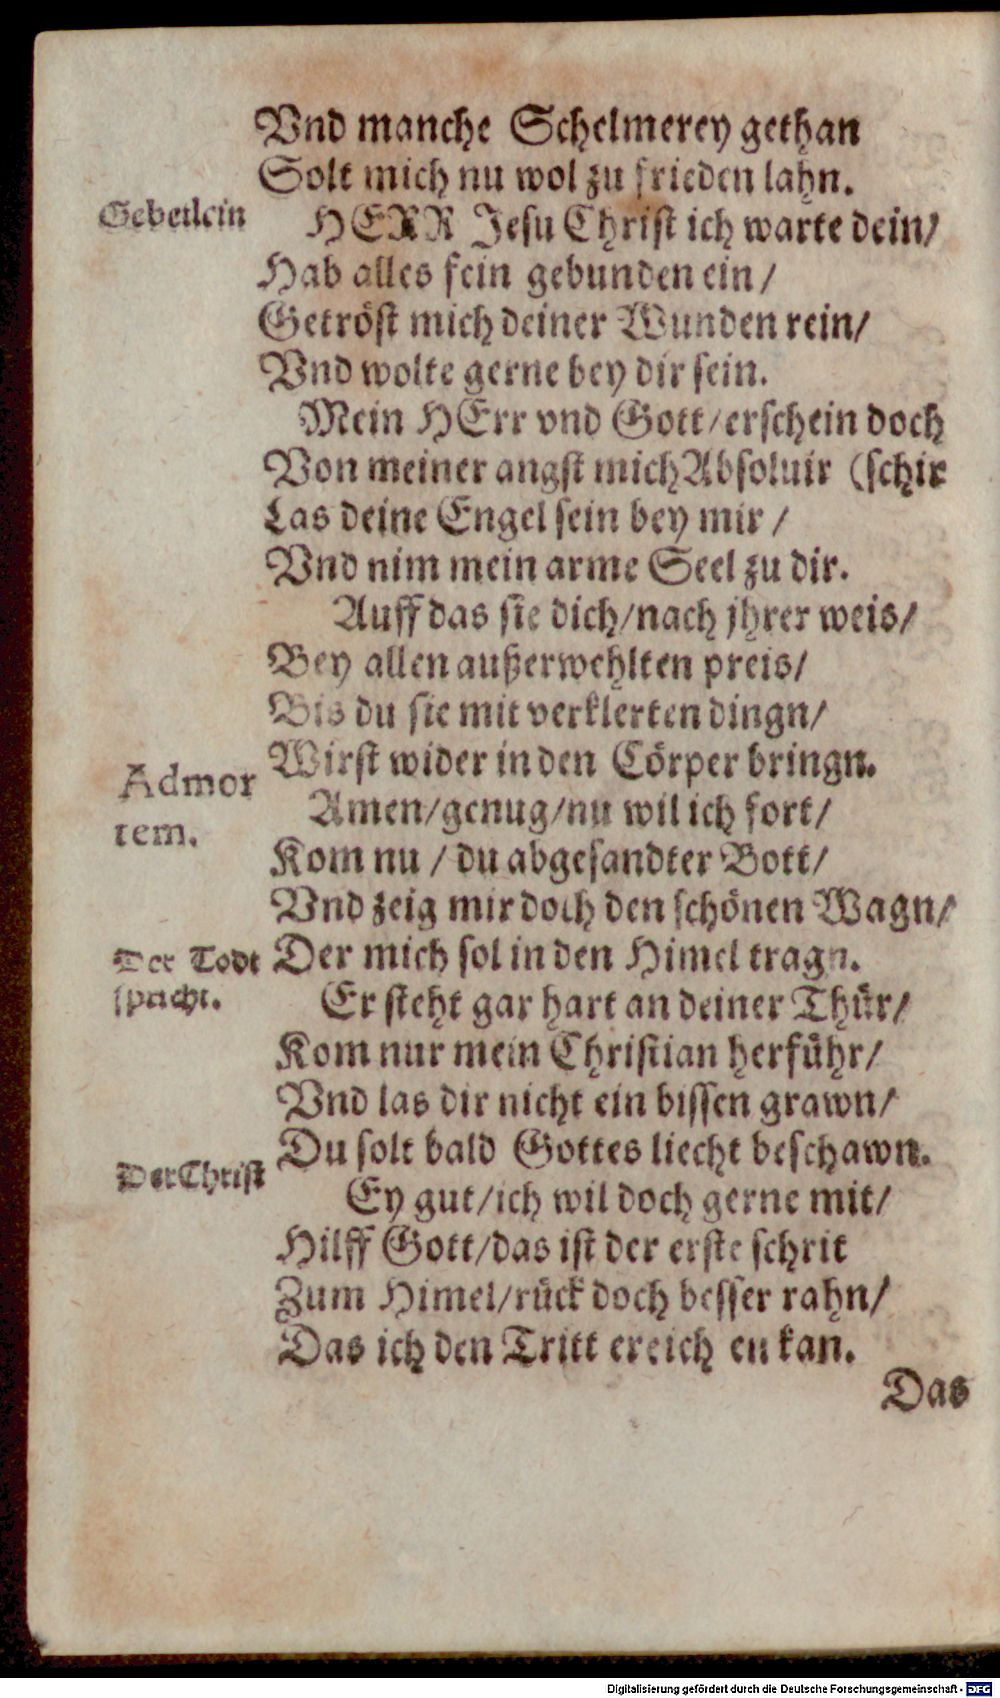 Vnd manche Schelmerey gethan
Solt mich nu wol zu frieden lahn.
Gebetlein
HERR Jesu Christ ich warte dein/
Hab alles fein gebunden ein/
Getröst mich deiner Wunden rein/
Vnd wolte gerne bey dir sein.
Mein HErr vnd Gott/erschein doch
Von meiner angst mich Absoluir (schir
Las deine Engel sein bey mir /
Vnd nim mein arme Seel zu dir.
Auff das sie dich/nach jhrer weis/
Bey allen außerwehlten preis/
Bis du sie mit verklerten dingn/
Wirst wider in den Cörper bringn.
Admor
tem.
Amen/genug/nu wil ich fort/
Kom nu / du abgesandter Bott/
Vnd zeig mir doch den schönen Wagn/
Der mich sol in den Himel tragn.
Der Todt
spricht.
Er steht gar hart an deiner Thür/
Kom nur mein Christian herführ/
Vnd las dir nicht ein bissen grawn/
Du solt bald Gottes liecht beschawn.
Der Christ
Ey gut/ich wil doch gerne mit/
Hilff Gott/das ist der erste schrit
Zum Himel/rück doch besser rahn/
Das ich den Tritt ereich en kan.
Das
Digitalisierung gefördert durch die Deutsche Forschungsgemeinschaft - DFG